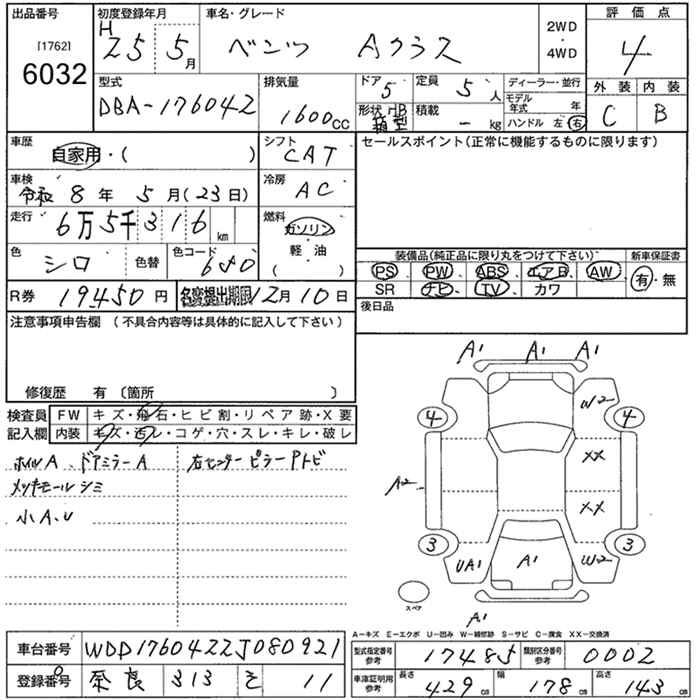 出品番号
[1762]
6032
初度登録年月
H 25 5月
車名・グレード
ベンツ Aクラス
2WD
・
4WD
評価点
4
外装 内装
C B
型式
DBA-176042
排気量
1600cc
ドア 5
定員 5人
形状 HB 箱型
積載 - kg
ディーラー・並行
モデル年式 年
ハンドル 左 右
車歴
自家用・( )
シフト
CAT
車検
令和8年5月(23日)
冷房
AC
走行
6万5千316km
燃料
ガソリン
軽・油
( )
色
シロ
色替
色コード
650
R券 19450円
名変提出期限12月10日
セールスポイント(正常に機能するものに限ります)
装備品(純正品に限り丸をつけて下さい)
新車保証書
PS PW ABS エアB AW
SR ナビ TV カワ
有・無
後日品
注意事項申告欄 (不具合内容等は具体的に記入して下さい)
修復歴 有 〔箇所 〕
検査員
記入欄
FW キズ・飛石・ヒビ割・リペア跡・X要
内装 キズ・汚レ・コゲ・穴・スレ・キレ・破レ
ホイルA、ドアミラーA
右センターピラーPトビ
メッキモールシミ
小A、U
A1 A1 A1
W2
4 4
XX
A2
XX
3 3
UA1 A1 W2
スペア
A1
A―キズ E―エクボ U―凹み W―補修跡 S―サビ C―腐食 XX―交換済
車台番号 WDD1760422J080921
登録番号 奈良 313 そ 11
型式指定番号 参考 17485
類別区分番号 参考 0002
車庫証明用 参考
長さ 429cm
幅 178cm
高さ 143cm